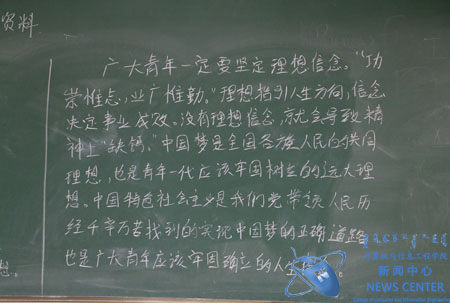 资料
广大青年一定要坚定理想信念。“功
崇惟志,业广惟勤。”理想指引人生方向,信念
决定事业成败。没有理想信念,就会导致精
神上“缺钙”。中国梦是全国各族人民的共同
理想,也是青年一代应该牢固树立的远大理
想。中国特色社会主义是我们党带领人民历
经千辛万苦找到的实现中国梦的正确道路
也是广大青年应该牢固确立的人生信
想。
计算机与信息工程学院
新闻中心
NEWS CENTER